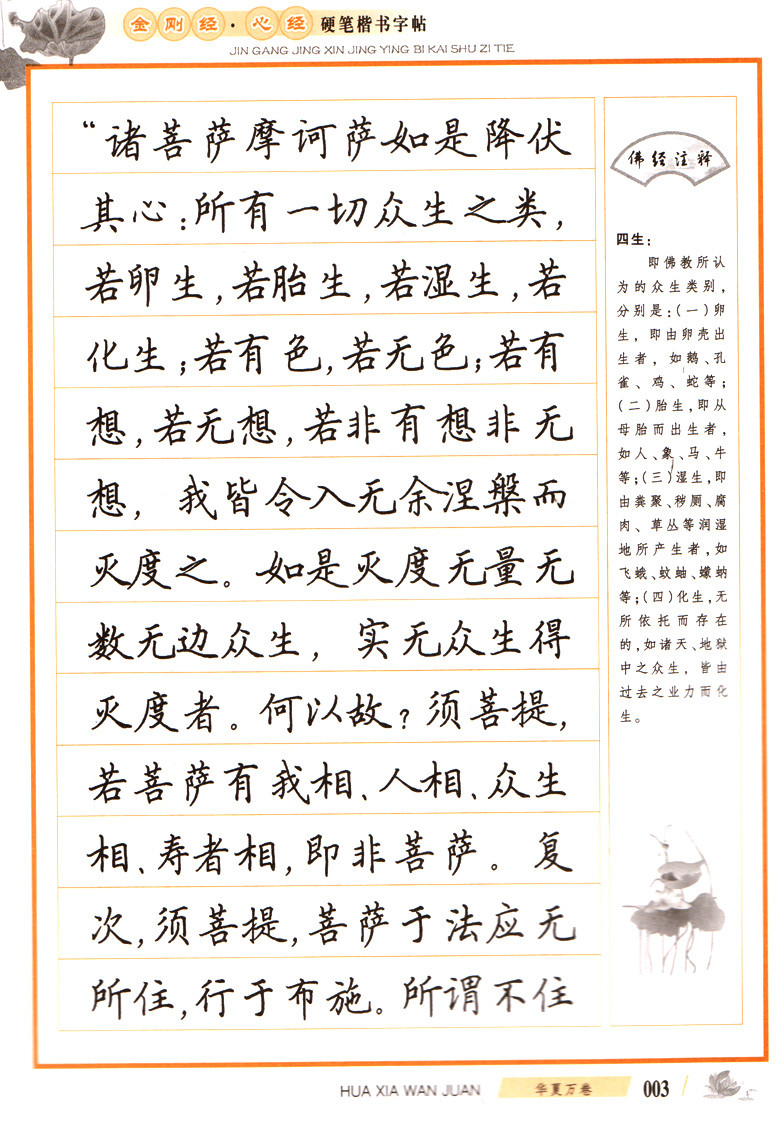 金刚经·心经 硬笔楷书字帖
JIN GANG JING XIN JING YING BI KAI SHU ZI TIE
“诸菩萨摩诃萨如是降伏
其心：所有一切众生之类，
若卵生，若胎生，若湿生，若
化生；若有色，若无色；若有
想，若无想，若非有想非无
想，我皆令入无余涅槃而
灭度之。如是灭度无量无
数无边众生，实无众生得
灭度者。何以故？须菩提，
若菩萨有我相、人相、众生
相、寿者相，即非菩萨。复
次，须菩提，菩萨于法应无
所住，行于布施。所谓不住
佛经注释
四生：
即佛教所认
为的众生类别，
分别是：（一）卵
生，即由卵壳出
生者，如鹅、孔
雀、鸡、蛇等；
（二）胎生，即从
母胎而出生者，
如人、象、马、牛
等；（三）湿生，即
由粪聚、秽厕、腐
肉、草丛等润湿
地所产生者，如
飞蛾、蚊蚰、蠓蚋
等；（四）化生，无
所依托而存在
的，如诸天、地狱
中之众生，皆由
过去之业力而化
生。
HUA XIA WAN JUAN 华夏万卷 003